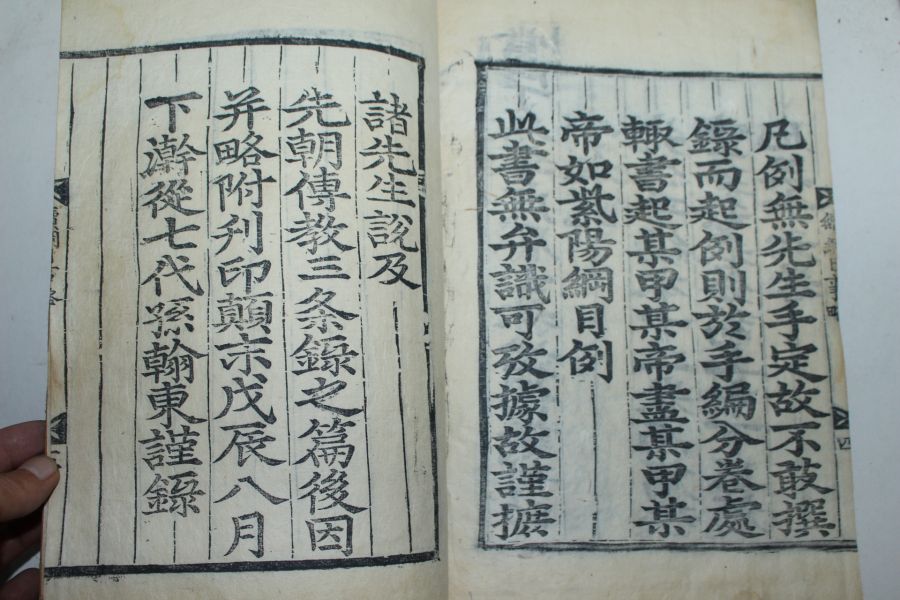 凡例無先生手定故不敢撰
錄而起例則於手編分卷處
輙書起某甲某帝盡某甲某
帝如紫陽綱目例
此書無弁識可攷據故謹摭
諸先生說及
先朝傳教三条錄之篇後因
并略附刋印顛末戊辰八月
下澣從七代孫翰東謹錄
四